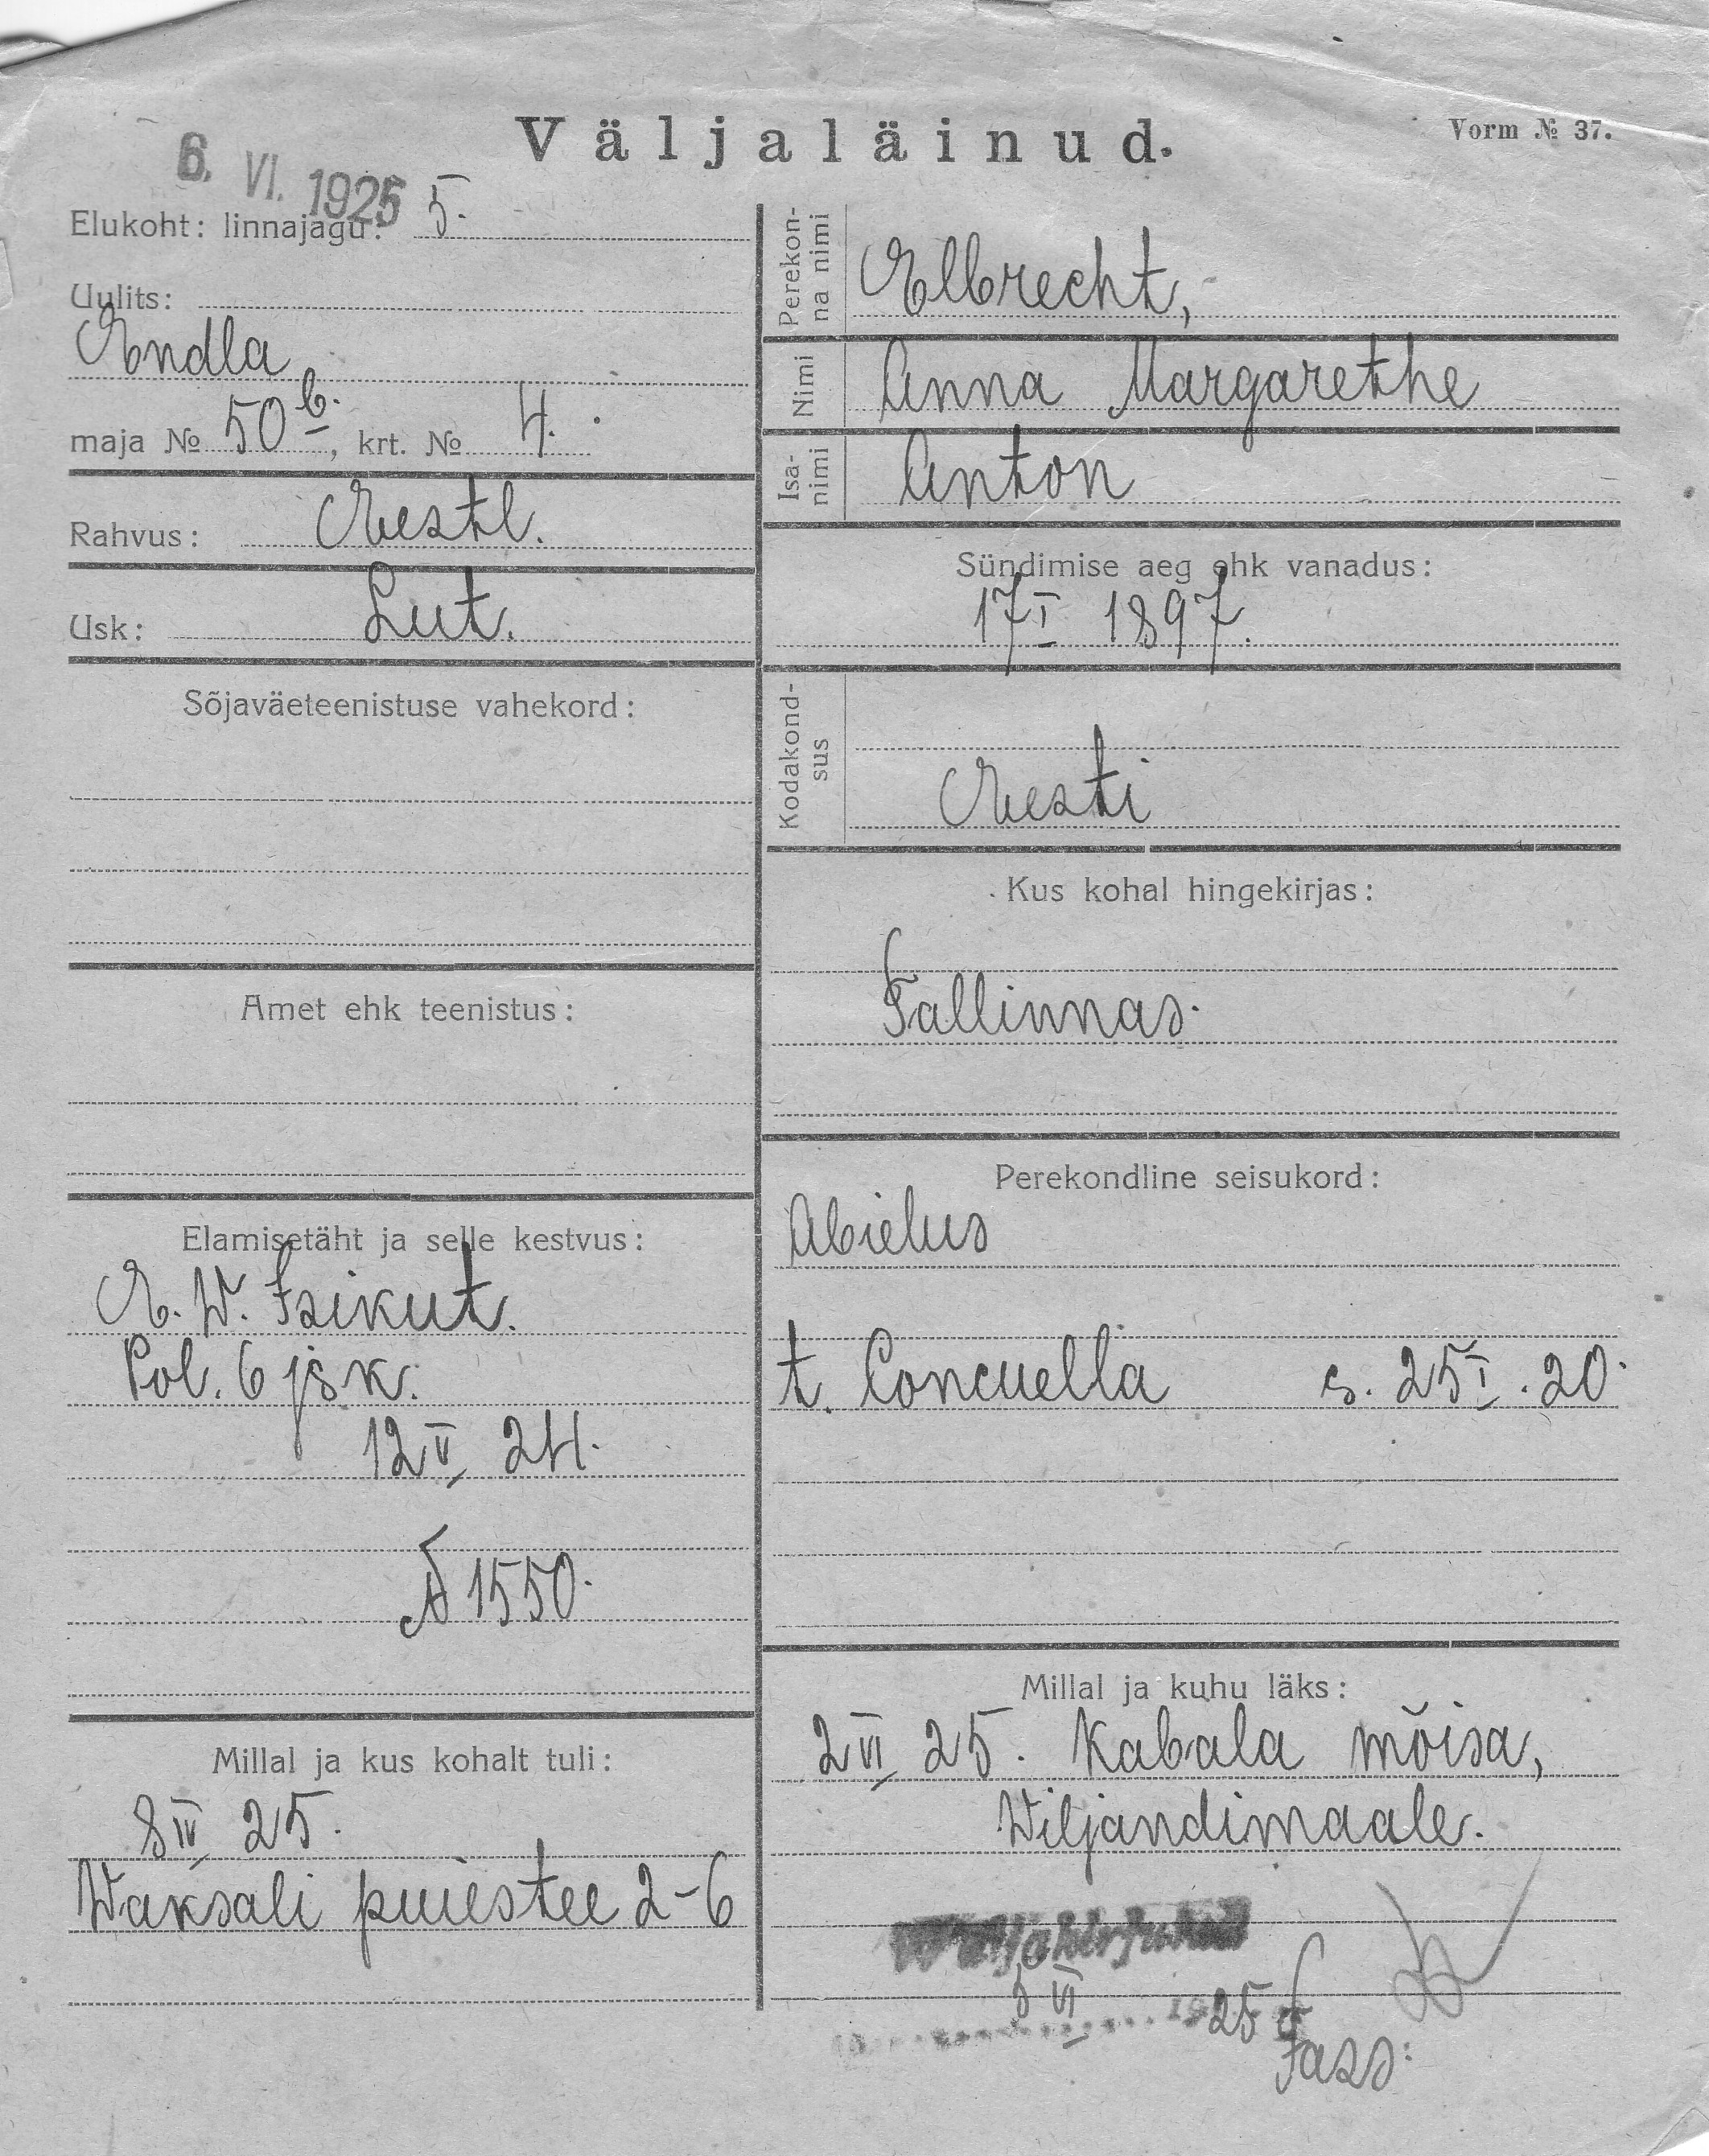 Väljaläinud.
Vorm № 37.
6. VI. 1925
Elukoht: linnajagu: 5.
Uulits:
Endla
maja № 50 b., krt. № 4.
Rahvus: Eestl.
Usk: Lut.
Sõjaväeteenistuse vahekord:
Amet ehk teenistus:
Elamisetäht ja selle kestvus:
E. W. Isikut.
Pol. 6 jsk.
12 V 24.
№ 1550.
Millal ja kus kohalt tuli:
8 IV 25.
Waksali puiestee 2-6
Perekon-
na nimi
Elbrecht,
Nimi
Anna Margarethe
Isa-
nimi
Anton
Sündimise aeg ehk vanadus:
17 I 1897.
Kodakond-
sus
Eesti
Kus kohal hingekirjas:
Tallinnas.
Perekondline seisukord:
Abielus
t. Concuella s. 25 I. 20.
Millal ja kuhu läks:
2 VI 25. Kabala mõisa,
Wiljandimaale.
VI 25